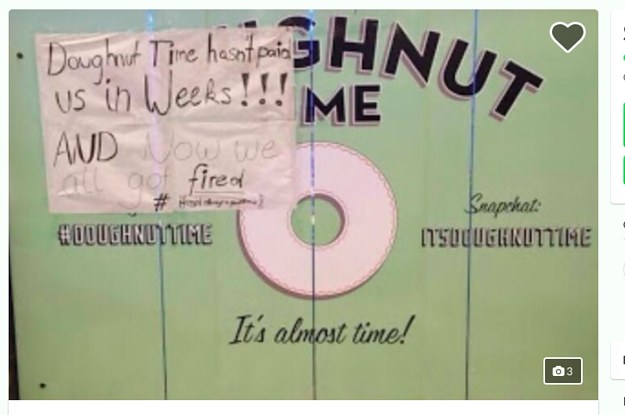 Doughnut Time hasn't paid
us in Weeks!!!
AND Now we
all got fired
#
GHNUT
ME
#DOUGHNUTTIME
Snapchat:
ITSDOUGHNUTTIME
It's almost time!
3